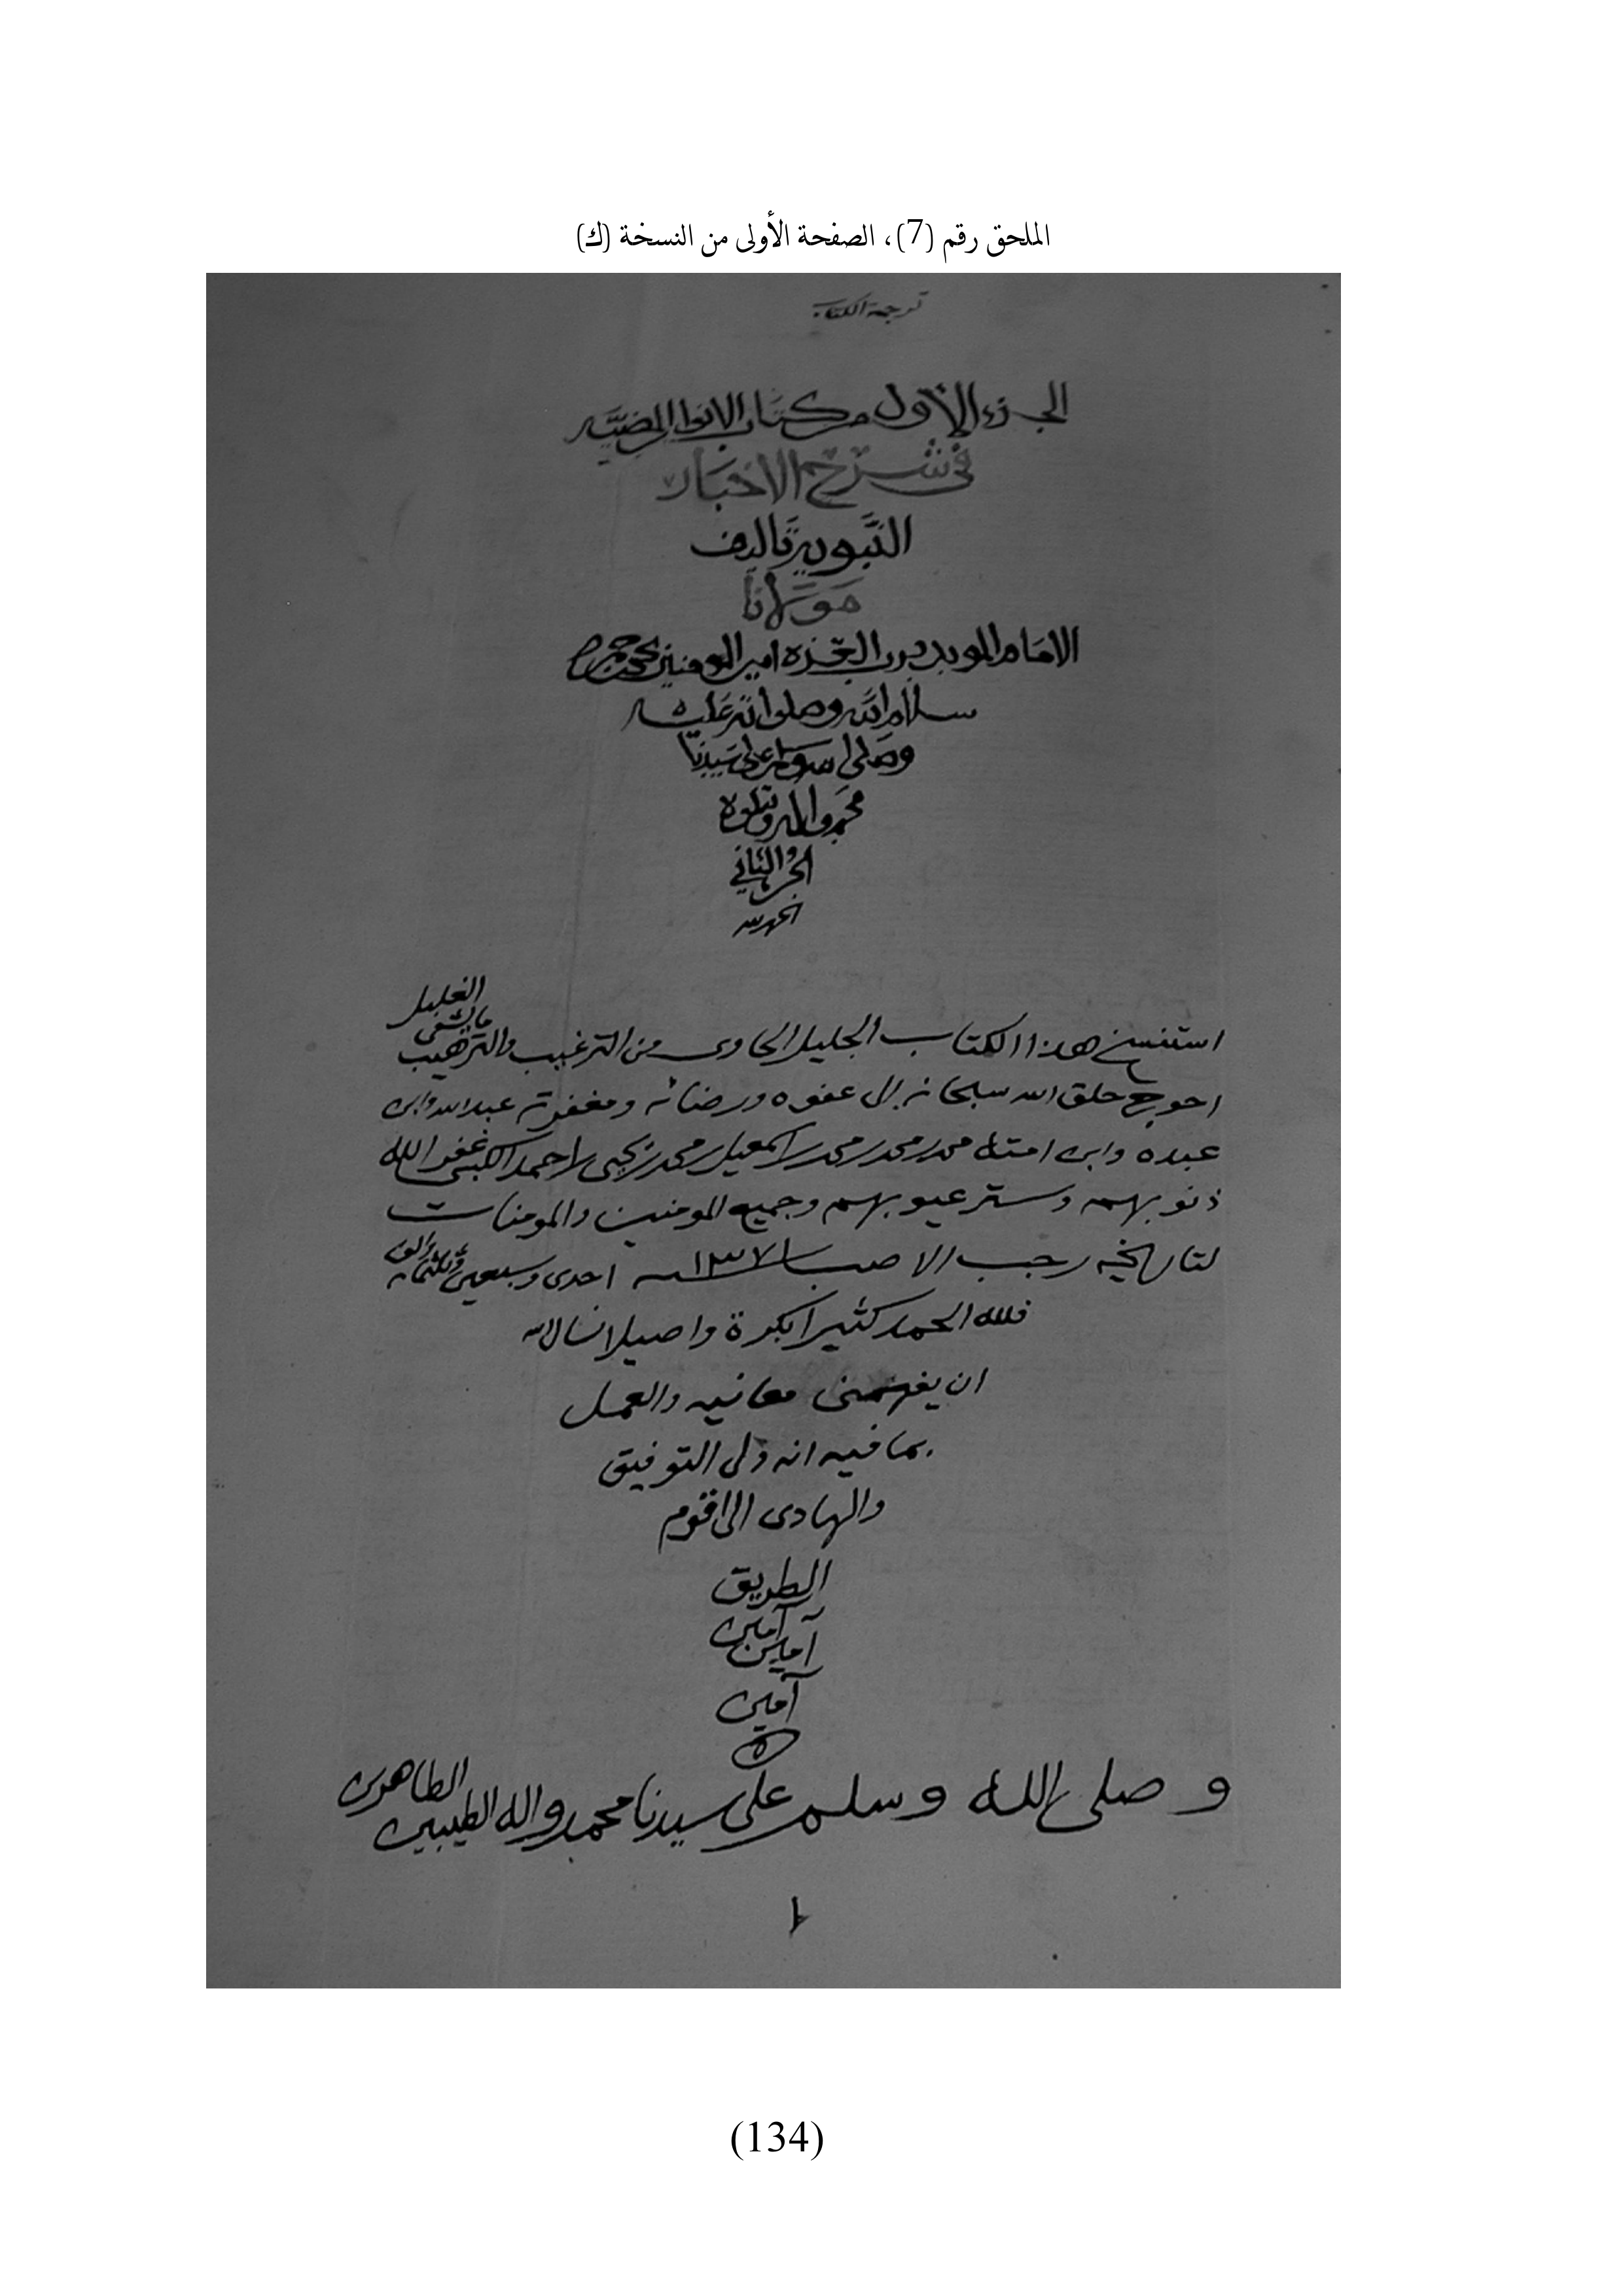 الملحق رقم (7)، الصفحة الأولى من النسخة (ك)
ترجمة الكتاب
الجزء الأول من كتاب الانوار المضيه
في شرح الاخبار
النبويه تاليف
مولانا
الامام المويد برب العزه امير المومنين يحيى بن حمزه
سلام الله وصلواته عليه
وصلى الله وسلم على سيدنا
محمد واله ويتلوه
الجزء الثاني
استنسخ هذا الكتاب الجليل الحاوى من الترغيب والترهيب مايشفى الغليل
احوج خلق الله سبحانه الى عفوه ورضائه ومغفرته عبدالله وابن
عبده وابن امته محمد بن محمد بن محمد بن اسمعيل بن محمد بن يحيى بن احمد الكبسي غفر الله
ذنوبهم وستر عيوبهم وجميع المومنين والمومنات
لتاريخه رجب الاصب ١٣٧١ احدى وسبعين وثلثمائه والف
فلله الحمد كثيرا بكرة واصيلا نسال الله
ان يفهمنى معانيه والعمل
بما فيه انه ولى التوفيق
والهادى الى اقوم
الطريق
آمين
آمين
آمين
وصلى الله وسلم على سيدنا محمد واله الطيبين الطاهرين
١
(134)